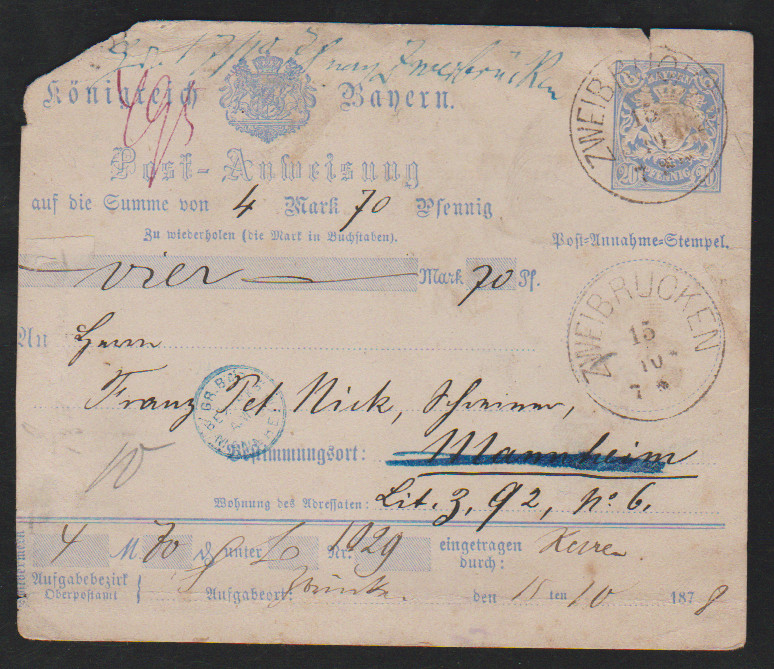 Zweibrücken
Königreich Bayern.
495
ZWEIBRÜCKEN
15
10
7
20 PFENNIG 20
Post-Anweisung
auf die Summe von 4 Mark 70 Pfennig
Zu wiederholen (die Mark in Buchstaben).
Post-Annahme-Stempel.
vier Mark 70 Pf.
ZWEIBRÜCKEN
15
10
7 *
An Herrn
GR. BAD.
Franz Pet. Nick, Schreiner,
Bestimmungsort: Mannheim
10
Wohnung des Adressaten: Lit. Z, 92, No 6.
4 M 70 ₰ unter L Nr. 1029 eingetragen durch:
Aufgabebezirk
Oberpostamt
Aufgabeort: den 15 ten 10 1878